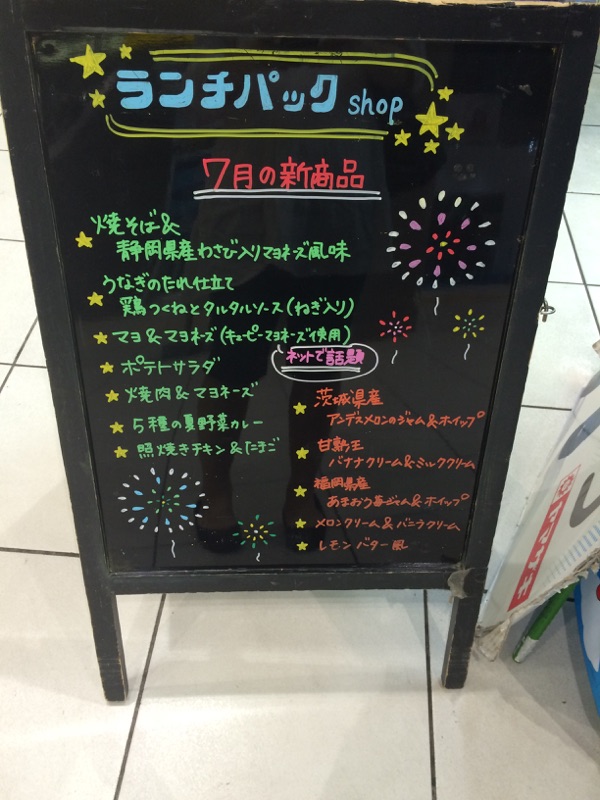 ランチパック shop
7月の新商品
焼そば&
静岡県産わさび入りマヨネーズ風味
うなぎのたれ仕立て
鶏つくねとタルタルソース(ねぎ入り)
マヨ&マヨネーズ(キューピーマヨネーズ使用)
ネットで話題
ポテトサラダ
焼肉&マヨネーズ
5種の夏野菜カレー
照焼きチキン&たまご
茨城県産
アンデスメロンのジャム&ホイップ
甘熟王
バナナクリーム&ミルククリーム
福岡県産
あまおう苺ジャム&ホイップ
メロンクリーム&バニラクリーム
レモンバター風
ヤマザキ